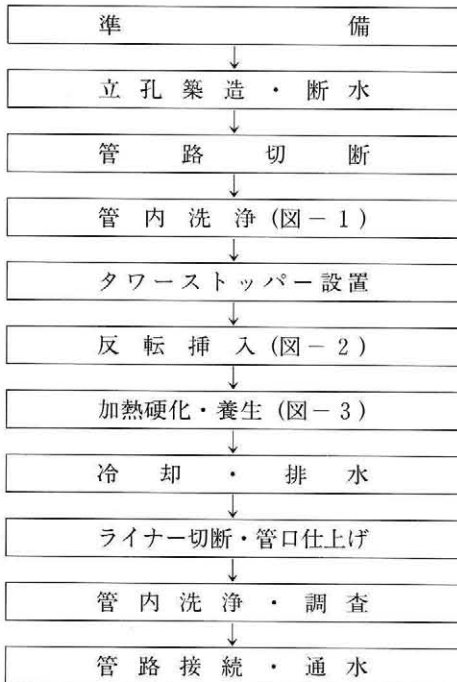 準備
↓
立孔築造・断水
↓
管路切断
↓
管内洗浄(図－1)
↓
タワーストッパー設置
↓
反転挿入(図－2)
↓
加熱硬化・養生(図－3)
↓
冷却・排水
↓
ライナー切断・管口仕上げ
↓
管内洗浄・調査
↓
管路接続・通水